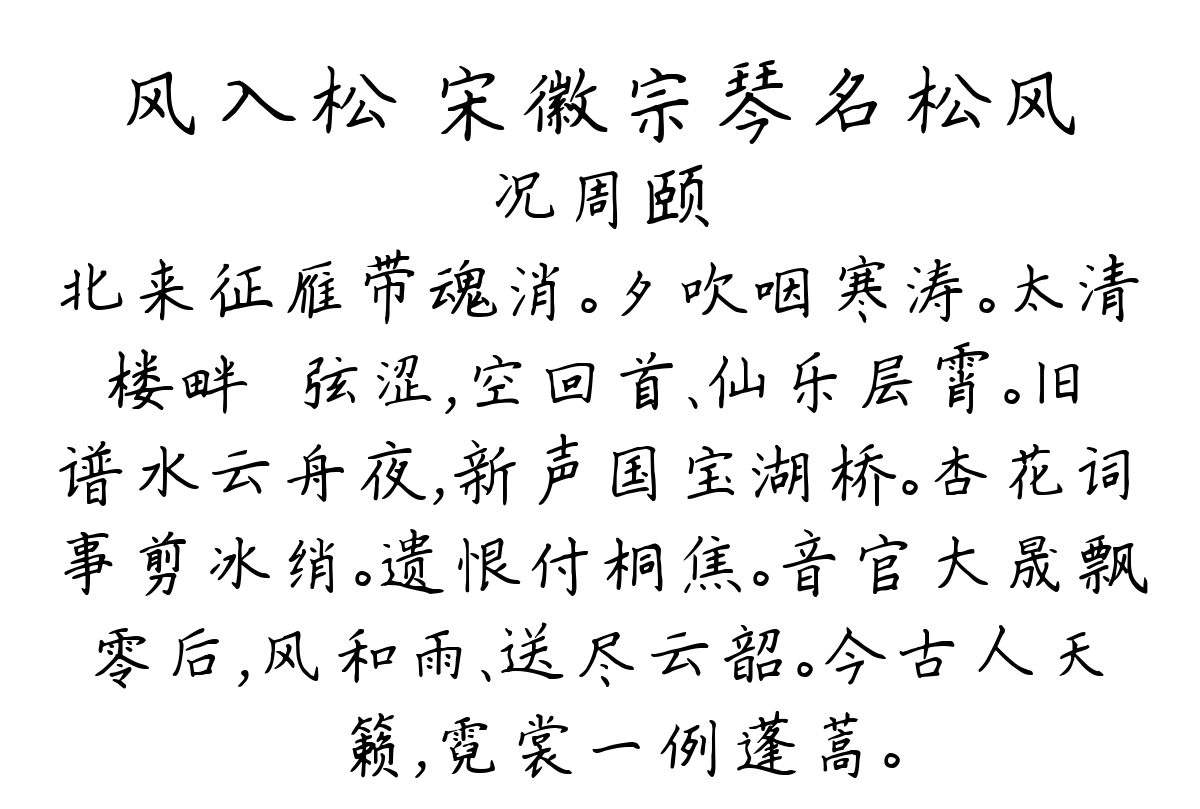 风入松 宋徽宗琴名松风
况周颐
北来征雁带魂消。夕吹咽寒涛。太清
楼畔 弦涩,空回首、仙乐层霄。旧
谱水云舟夜,新声国宝湖桥。杏花词
事剪冰绡。遗恨付桐焦。音官大晟飘
零后,风和雨、送尽云韶。今古人天
籁,霓裳一例蓬蒿。